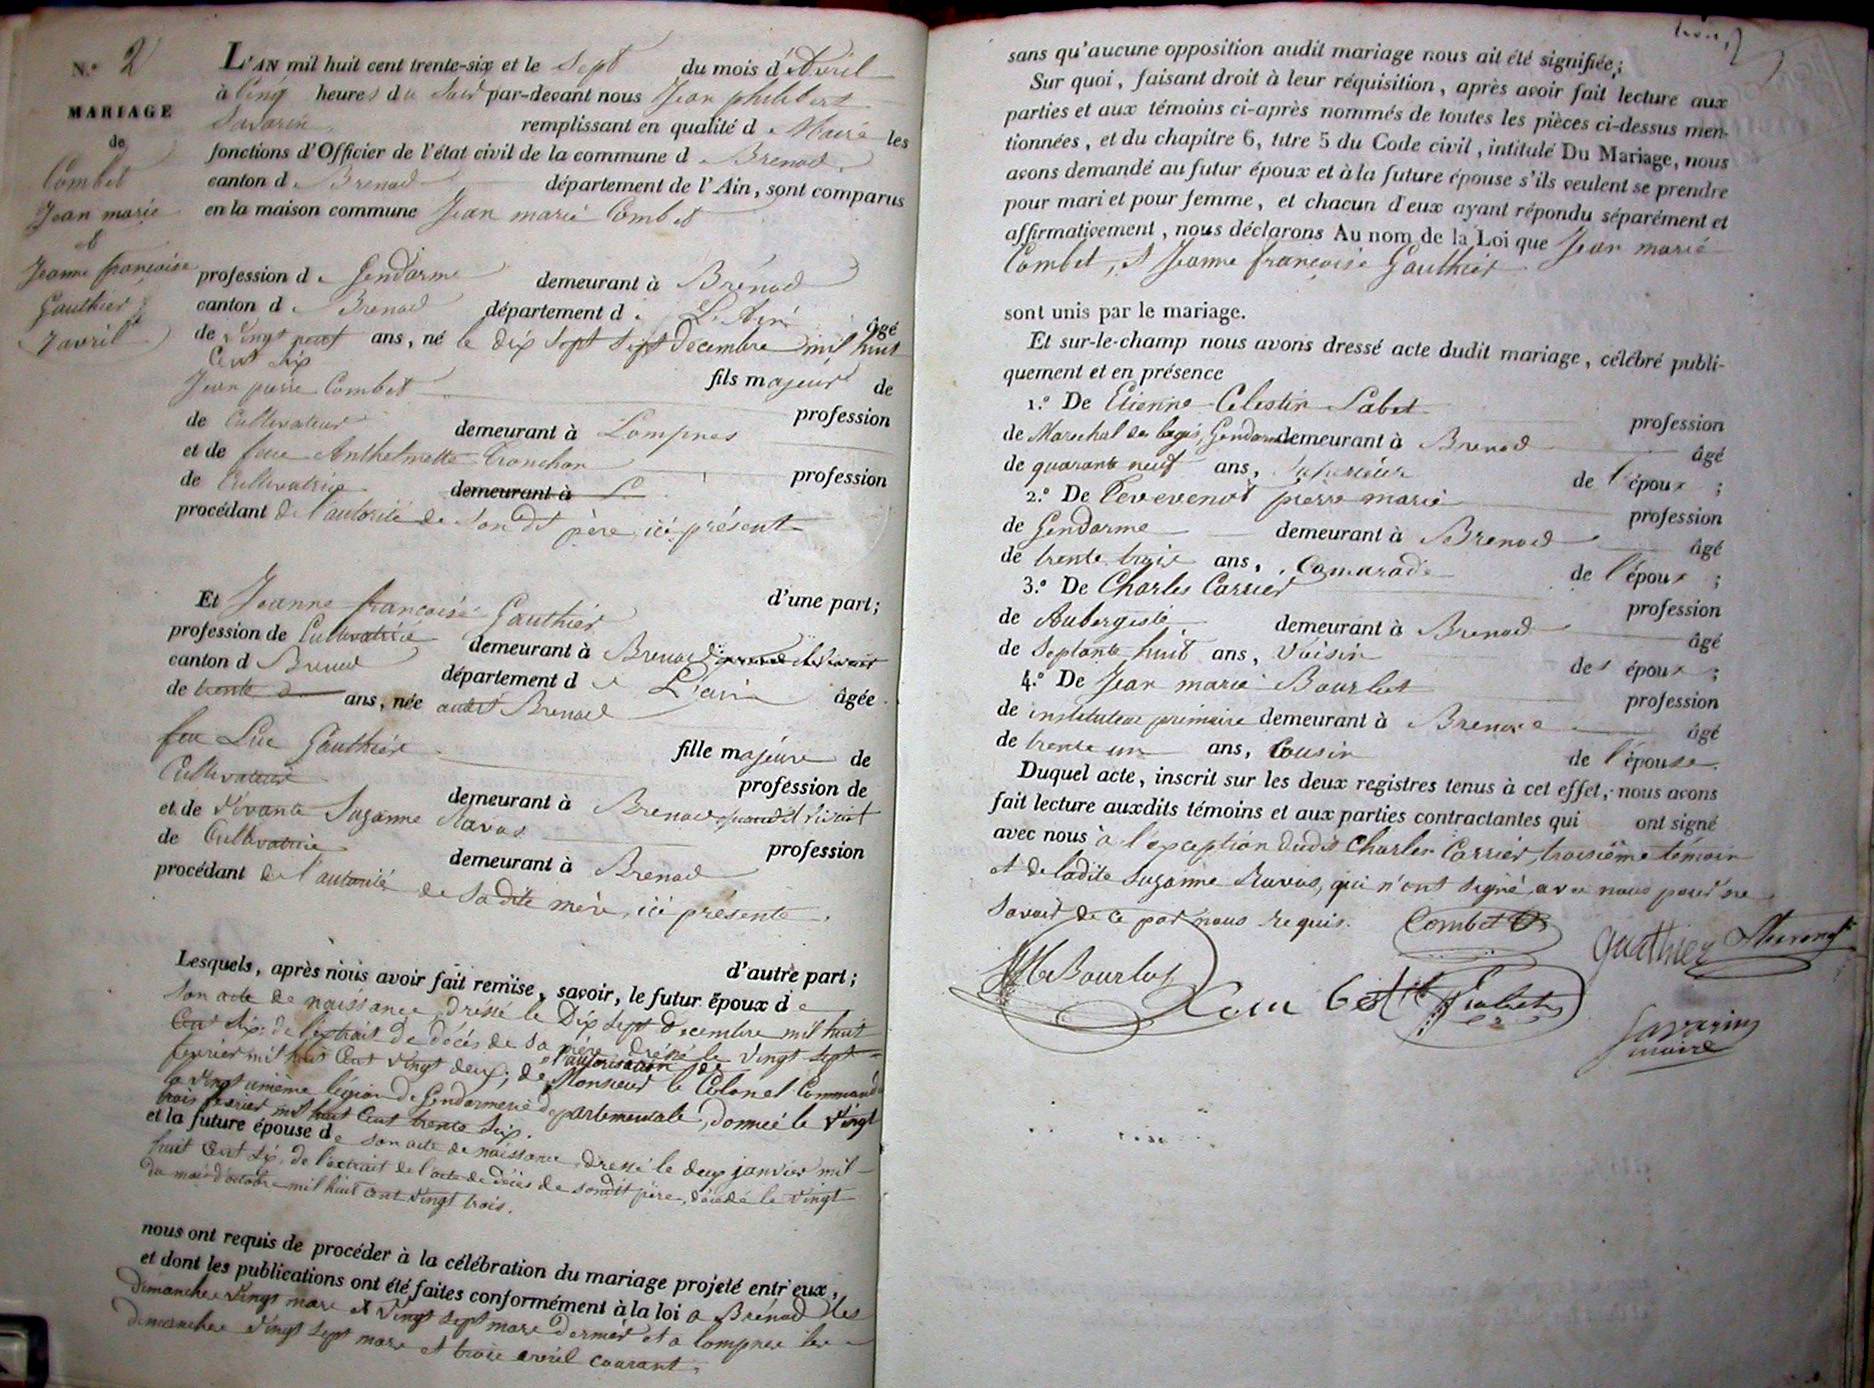 N.º 2
MARIAGE
de
Combet
Jean marie
et
Jeanne françoise
Gauthier
7 avril
L'AN mil huit cent trente-six et le Sept du mois d'Avril
à Cinq heures du Soir par-devant nous Jean philibert
Savarin remplissant en qualité de Maire les
fonctions d'Officier de l'état civil de la commune d Brenod
canton d Brenod département de l'Ain, sont comparus
en la maison commune Jean marie Combet
profession de Gendarme demeurant à Brenod
canton d Brenod département de L'Ain âgé
de vingt neuf ans, né le dix Sept Decembre mil huit
Cent Six
fils majeur de
Jean pierre Combet profession
de Cultivateur demeurant à Lompnes
et de feue Anthelmette Tronchon profession
de Cultivatrice demeurant à L
procédant de l'autorité de Son dit père, ici présent
d'une part;
Et Jeanne françoise Gauthier
profession de Cultivatrice demeurant à Brenod
canton d Brenod département de L'ain âgée
de trente ans, née audit Brenod
fille majeure de
feu Luc Gauthier profession de
Cultivateur demeurant à Brenod quand il vivait
et de vivante Suzanne Ravas profession
de Cultivatrice demeurant à Brenod
procédant de l'autorité de Sa dite mère, ici présente,
d'autre part;
Lesquels, après nous avoir fait remise, savoir, le futur époux de
Son acte de naissance, dressé le Dix Sept Decembre mil huit
Cent Six; de l'extrait de décés de Sa mère, dressé le vingt Sept
fevrier mil huit Cent vingt deux; de l'autorisation de Monsieur le Colonel Command
la vingt unième légion de Gendarmerie departementale, donnée le vingt
trois fevrier mil huit Cent trente Six.
et la future épouse de son acte de naissance, dressé le deux janvier mil
huit Cent Six, de l'extrait de l'acte de décés de Sondit père, décédé le vingt
du mois d'octobre mil huit cent vingt trois.
nous ont requis de procéder à la célébration du mariage projeté entr'eux,
et dont les publications ont été faites conformément à la loi a Brénod les
Dimanches vingt mars et vingt Sept mars dernier et a lompnes les
dimanches vingt Sept mars et trois avril courant,
sans qu'aucune opposition audit mariage nous ait été signifiée;
Sur quoi, faisant droit à leur réquisition, après avoir fait lecture aux
parties et aux témoins ci-après nommés de toutes les pièces ci-dessus men-
tionnées, et du chapitre 6, titre 5 du Code civil, intitulé Du Mariage, nous
avons demandé au futur époux et à la future épouse s'ils veulent se prendre
pour mari et pour femme, et chacun d'eux ayant répondu séparément et
affirmativement, nous déclarons Au nom de la Loi que Jean marie
Combet, et Jeanne françoise Gauthier
sont unis par le mariage.
Et sur-le-champ nous avons dressé acte dudit mariage, célébré publi-
quement et en présence
1.º De Etienne Celestin Sabet profession
de Marechal des logis, Gendarme demeurant à Brenod âgé
de quarante neuf ans, de l'époux;
2.º De pierre marie profession
de Gendarme demeurant à Brenod âgé
de trente trois ans, Camarade de l'époux;
3.º De Charles Carrier profession
de Aubergiste demeurant à Brenod âgé
de Septante huit ans, Voisin des époux;
4.º De Jean marie Bourlot profession
de instituteur primaire demeurant à Brenod âgé
de trente un ans, Cousin de l'épouse.
Duquel acte, inscrit sur les deux registres tenus à cet effet, nous avons
fait lecture auxdits témoins et aux parties contractantes qui ont signé
avec nous à l'exception dudit Charles Carrier, troisième témoin
et de ladite Suzanne Ravas, qui n'ont signé avec nous pour ne
Savoir de ce par nous requis.
Combet
Gauthier
JM Bourlot
Combet
Savarin
maire